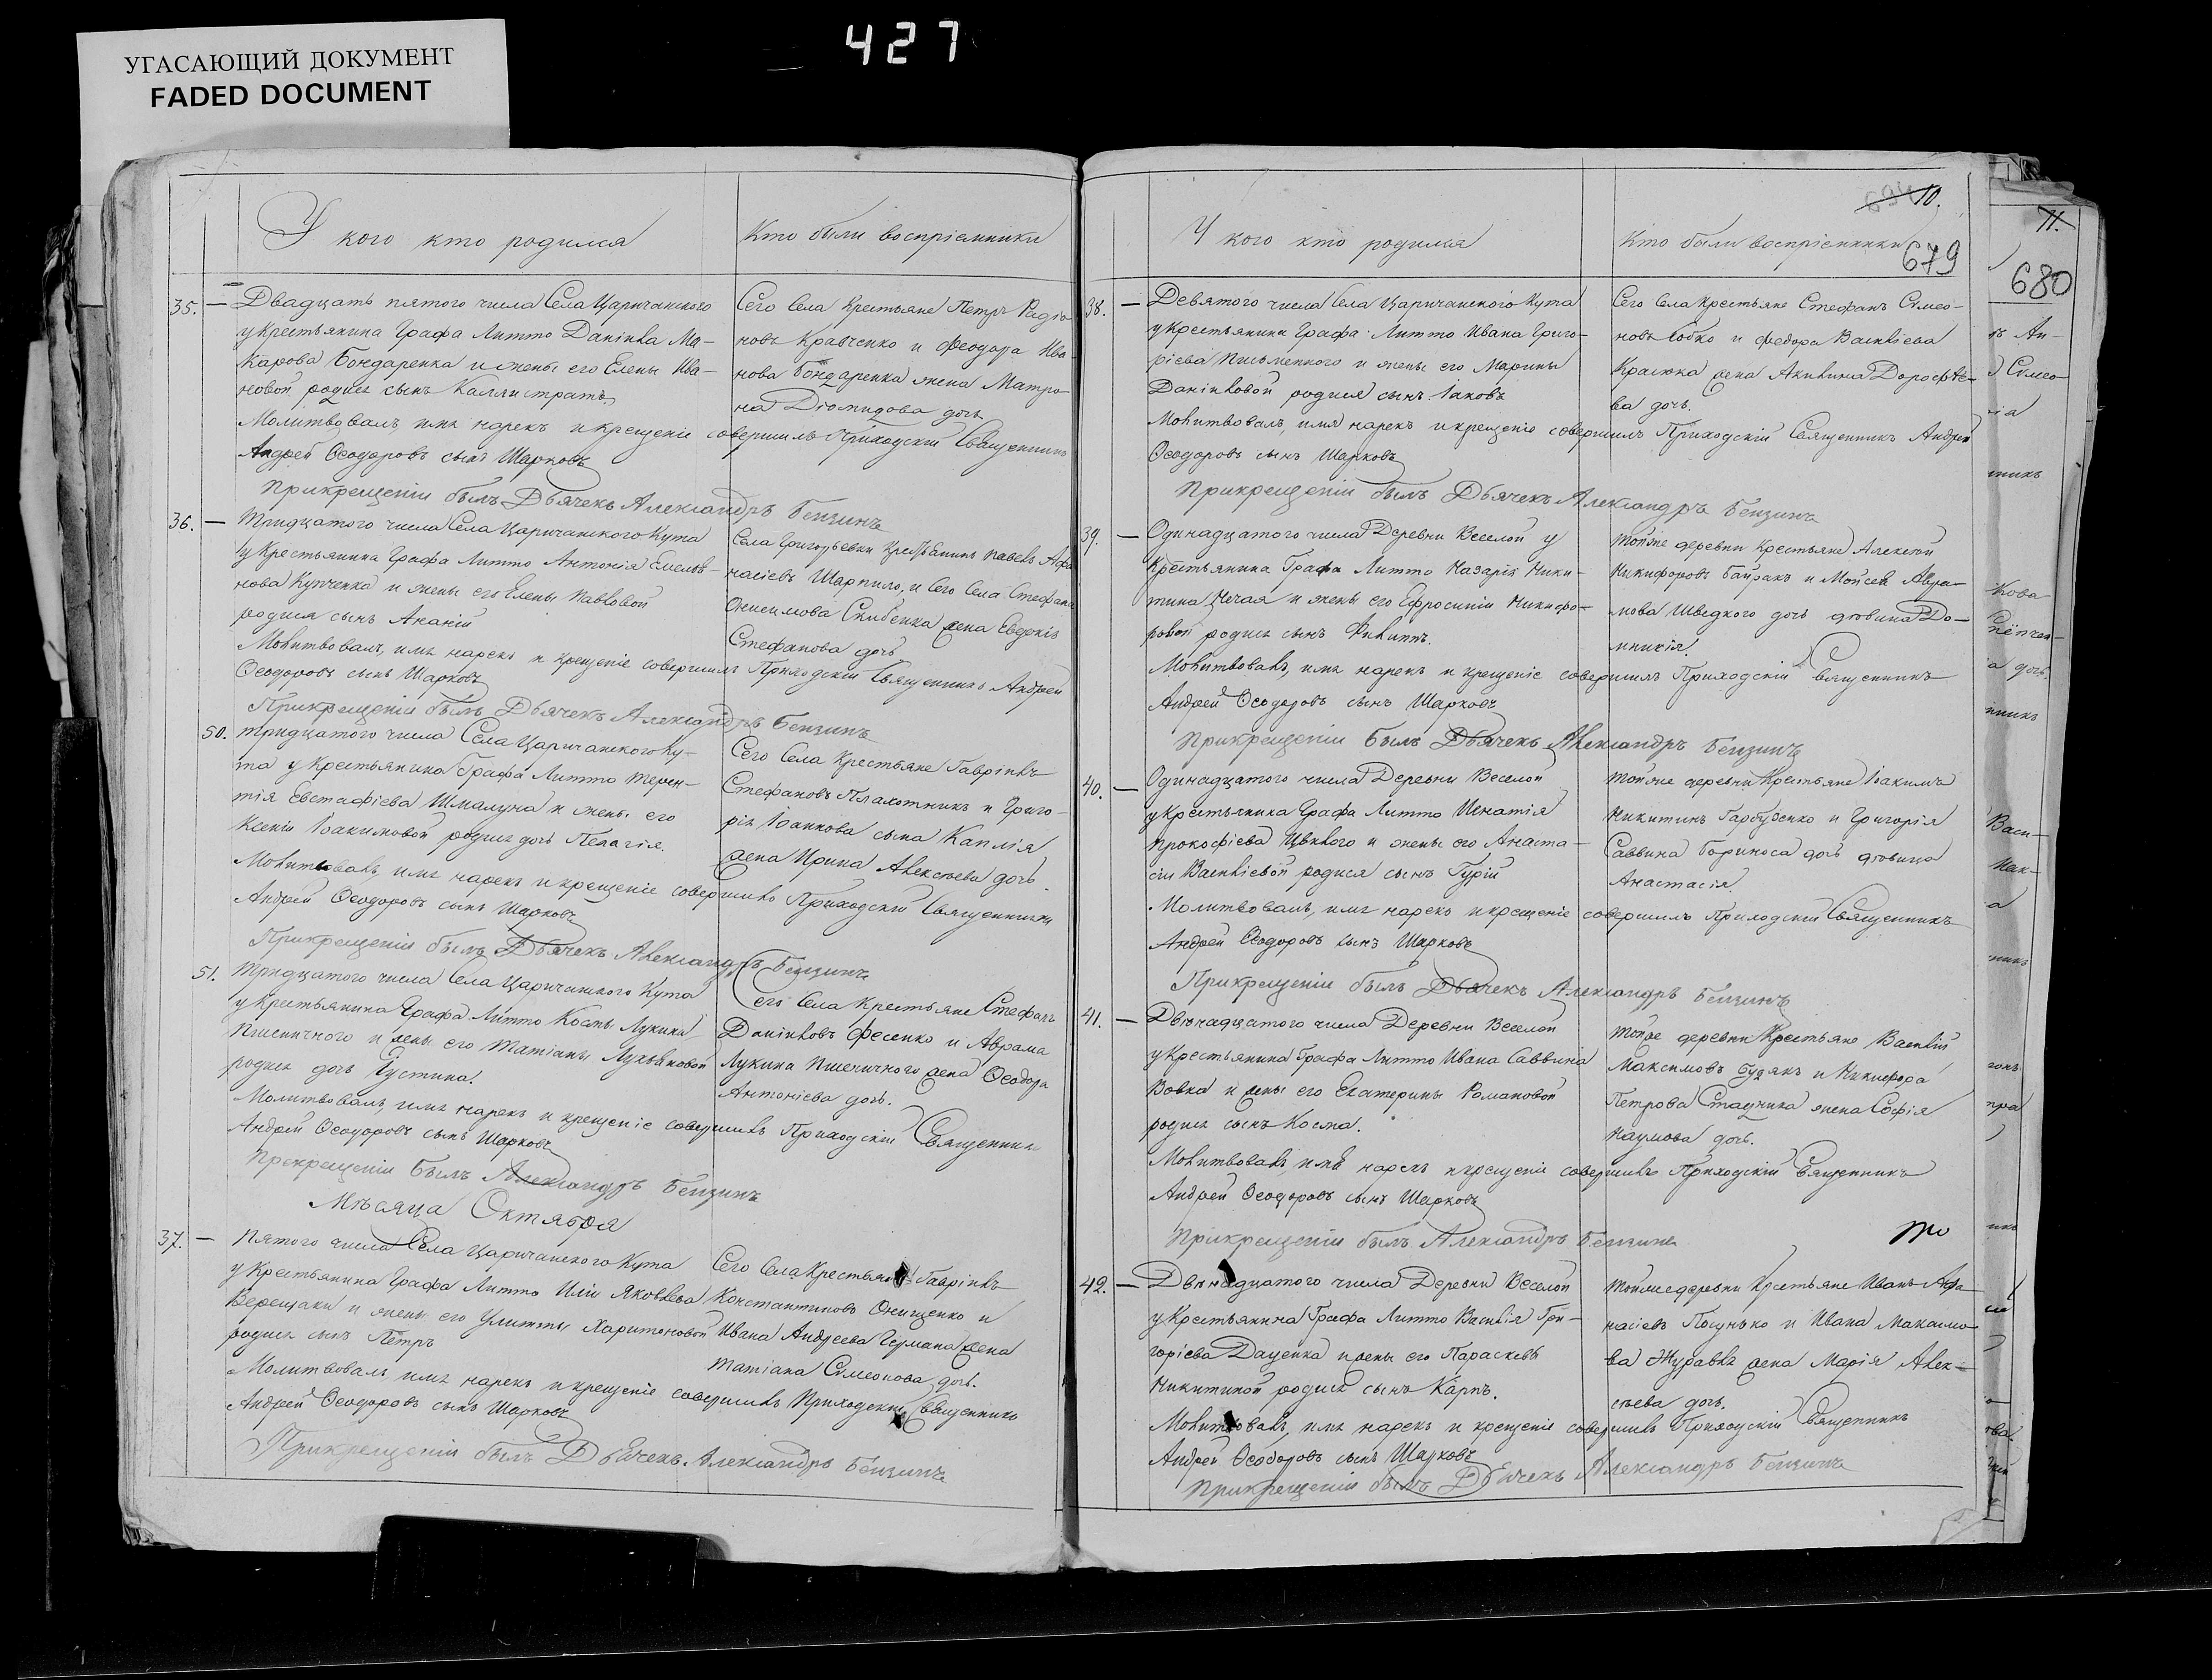 427
УГАСАЮЩИЙ ДОКУМЕНТ
FADED DOCUMENT
У кого кто родился
Кто были воспріемники
35. — Двадцать пятого числа Села Царичанского
у крестьянина Графа Литто Даніила Ма-
карова Бондаренка и жены его Елены Ива-
новой родился сынъ Каллистратъ.
Сего Села Крестьяне Петръ Радіо-
новъ Кравченко и Феодора Ива-
нова Бондаренка жена Матро-
на Діомидова дочь
Молитвовалъ, имя нарекъ и крещеніе совершилъ Приходскій Священникъ
Андрей Ѳеодоровъ сынъ Шарковъ
При крещеніи былъ Дьячекъ Александръ Бензинъ
36. — Тридцатого числа Села Царичанского Кута
у Крестьянина Графа Литто Антонія Емелья-
нова Купченка и жены его Елены Павловой
родился сынъ Ананій
Села Григорьевки Крестьянинъ Павелъ Афа-
насіевъ Шарпило, и Сего Села Стефана
Онисимова Скибенка жена Евдокія
Стефанова дочь
Молитвовалъ, имя нарекъ и крещеніе совершилъ Приходскій Священникъ Андрей
Ѳеодоровъ сынъ Шарковъ
При крещеніи былъ Дьячекъ Александръ Бензинъ
50. Тридцатого числа Села Царичанского Ку-
та у крестьянина Графа Литто Терен-
тія Евстафіева Шмалуна и жены его
Ксеніи Іоакимовой родися дочь Пелагія.
Сего Села Крестьяне Гавріилъ
Стефановъ Плахотникъ и Григо-
рія Іоаннова сына Каплія
жена Ирина Алексѣева дочь.
Молитвовалъ, имя нарекъ и крещеніе совершилъ Приходскій Священникъ
Андрей Ѳеодоровъ сынъ Шарковъ
При крещеніи былъ Дьячекъ Александръ Бензинъ
51. Тридцатого числа Села Царичанского Кута
у крестьянина Графа Литто Космы Лукина
Пшеничного и жены его Татіаны Лукьяновой
родися дочь Іустина.
Сего Села Крестьяне Стефанъ
Даніиловъ Фесенко и Аврама
Лукина Пшеничного жена Ѳеодора
Антоніева дочь.
Молитвовалъ, имя нарекъ и крещеніе совершилъ Приходскій Священникъ
Андрей Ѳеодоровъ сынъ Шарковъ
При крещеніи былъ Александръ Бензинъ
Мѣсяца Октября
37. — Пятого числа Села Царичанского Кута
у Крестьянина Графа Литто Иліи Яковлева
Верещаки и жены его Улиты Харитоновой
родися сынъ Петръ
Сего Села Крестьяне Гавріилъ
Константиновъ Онищенко и
Ивана Андреева Германа жена
Татіана Симеонова дочь.
Молитвовалъ, имя нарекъ и крещеніе совершилъ Приходскій Священникъ
Андрей Ѳеодоровъ сынъ Шарковъ
При крещеніи былъ Дьячекъ Александръ Бензинъ
10.
679
У кого кто родился
Кто были воспріемники
38. — Девятого числа Села Царичанского Кута
у Крестьянина Графа Литто Ивана Григо-
ріева Письменного и жены его Марины
Даніиловой родися сынъ Іаковъ
Сего Села Крестьяне Стефанъ Симео-
новъ Собко и Федора Василіева
жена Акилина Дорофѣе-
ва дочь.
Молитвовалъ, имя нарекъ и крещеніе совершилъ Приходскій Священникъ Андрей
Ѳеодоровъ сынъ Шарковъ
При крещеніи былъ Дьячекъ Александръ Бензинъ
39. — Одинадцатого числа Деревни Веселой у
Крестьянина Графа Литто Назарія Ники-
тина Нечая и жены его Ефросиніи Никифо-
ровой родися сынъ Филиппъ.
Тойже деревни Крестьяне Алексѣй
Никифоровъ Байракъ и Мойсея Авра-
мова Шведкого дочь дѣвица До-
мникія.
Молитвовалъ, имя нарекъ и крещеніе совершилъ Приходскій Священникъ
Андрей Ѳеодоровъ сынъ Шарковъ
При крещеніи былъ Дьячекъ Александръ Бензинъ
40. — Одинадцатого числа Деревни Веселой
у крестьянина Графа Литто Игнатія
Прокофіева Цвилого и жены его Анаста-
сіи Василіевой родися сынъ Гурій
Тойже деревни Крестьяне Іоакимъ
Никитинъ Гарбузенко и Григорія
Саввина Бориноса дочь дѣвица
Анастасія.
Молитвовалъ, имя нарекъ и крещеніе совершилъ Приходскій Священникъ
Андрей Ѳеодоровъ сынъ Шарковъ
При крещеніи былъ Дьячекъ Александръ Бензинъ
41. — Двѣнадцатого числа Деревни Веселой
у Крестьянина Графа Литто Ивана Саввина
Вовка и жены его Екатерины Романовой
родися сынъ Косма.
Тойже деревни Крестьяне Василій
Максимовъ Будякъ и Никифора
Петрова Стадника жена Софія
Наумова дочь.
Молитвовалъ имя нарекъ и крещеніе совершилъ Приходскій Священникъ
Андрей Ѳеодоровъ сынъ Шарковъ
При крещеніи былъ Александръ Бензинъ
42. — Двѣнадцатого числа Деревни Веселой
у Крестьянина Графа Литто Василія Гри-
горіева Даценка и жены его Параскевы
Никитиной родися сынъ Карпъ.
Тойже деревни Крестьяне Иванъ Афа-
насіевъ Посунько и Ивана Максимо-
ва Журавля жена Марія Алек-
сѣева дочь.
Молитвовалъ, имя нарекъ и крещеніе совершилъ Приходскій Священникъ
Андрей Ѳеодоровъ сынъ Шарковъ
При крещеніи былъ Дьячекъ Александръ Бензинъ
11.
680